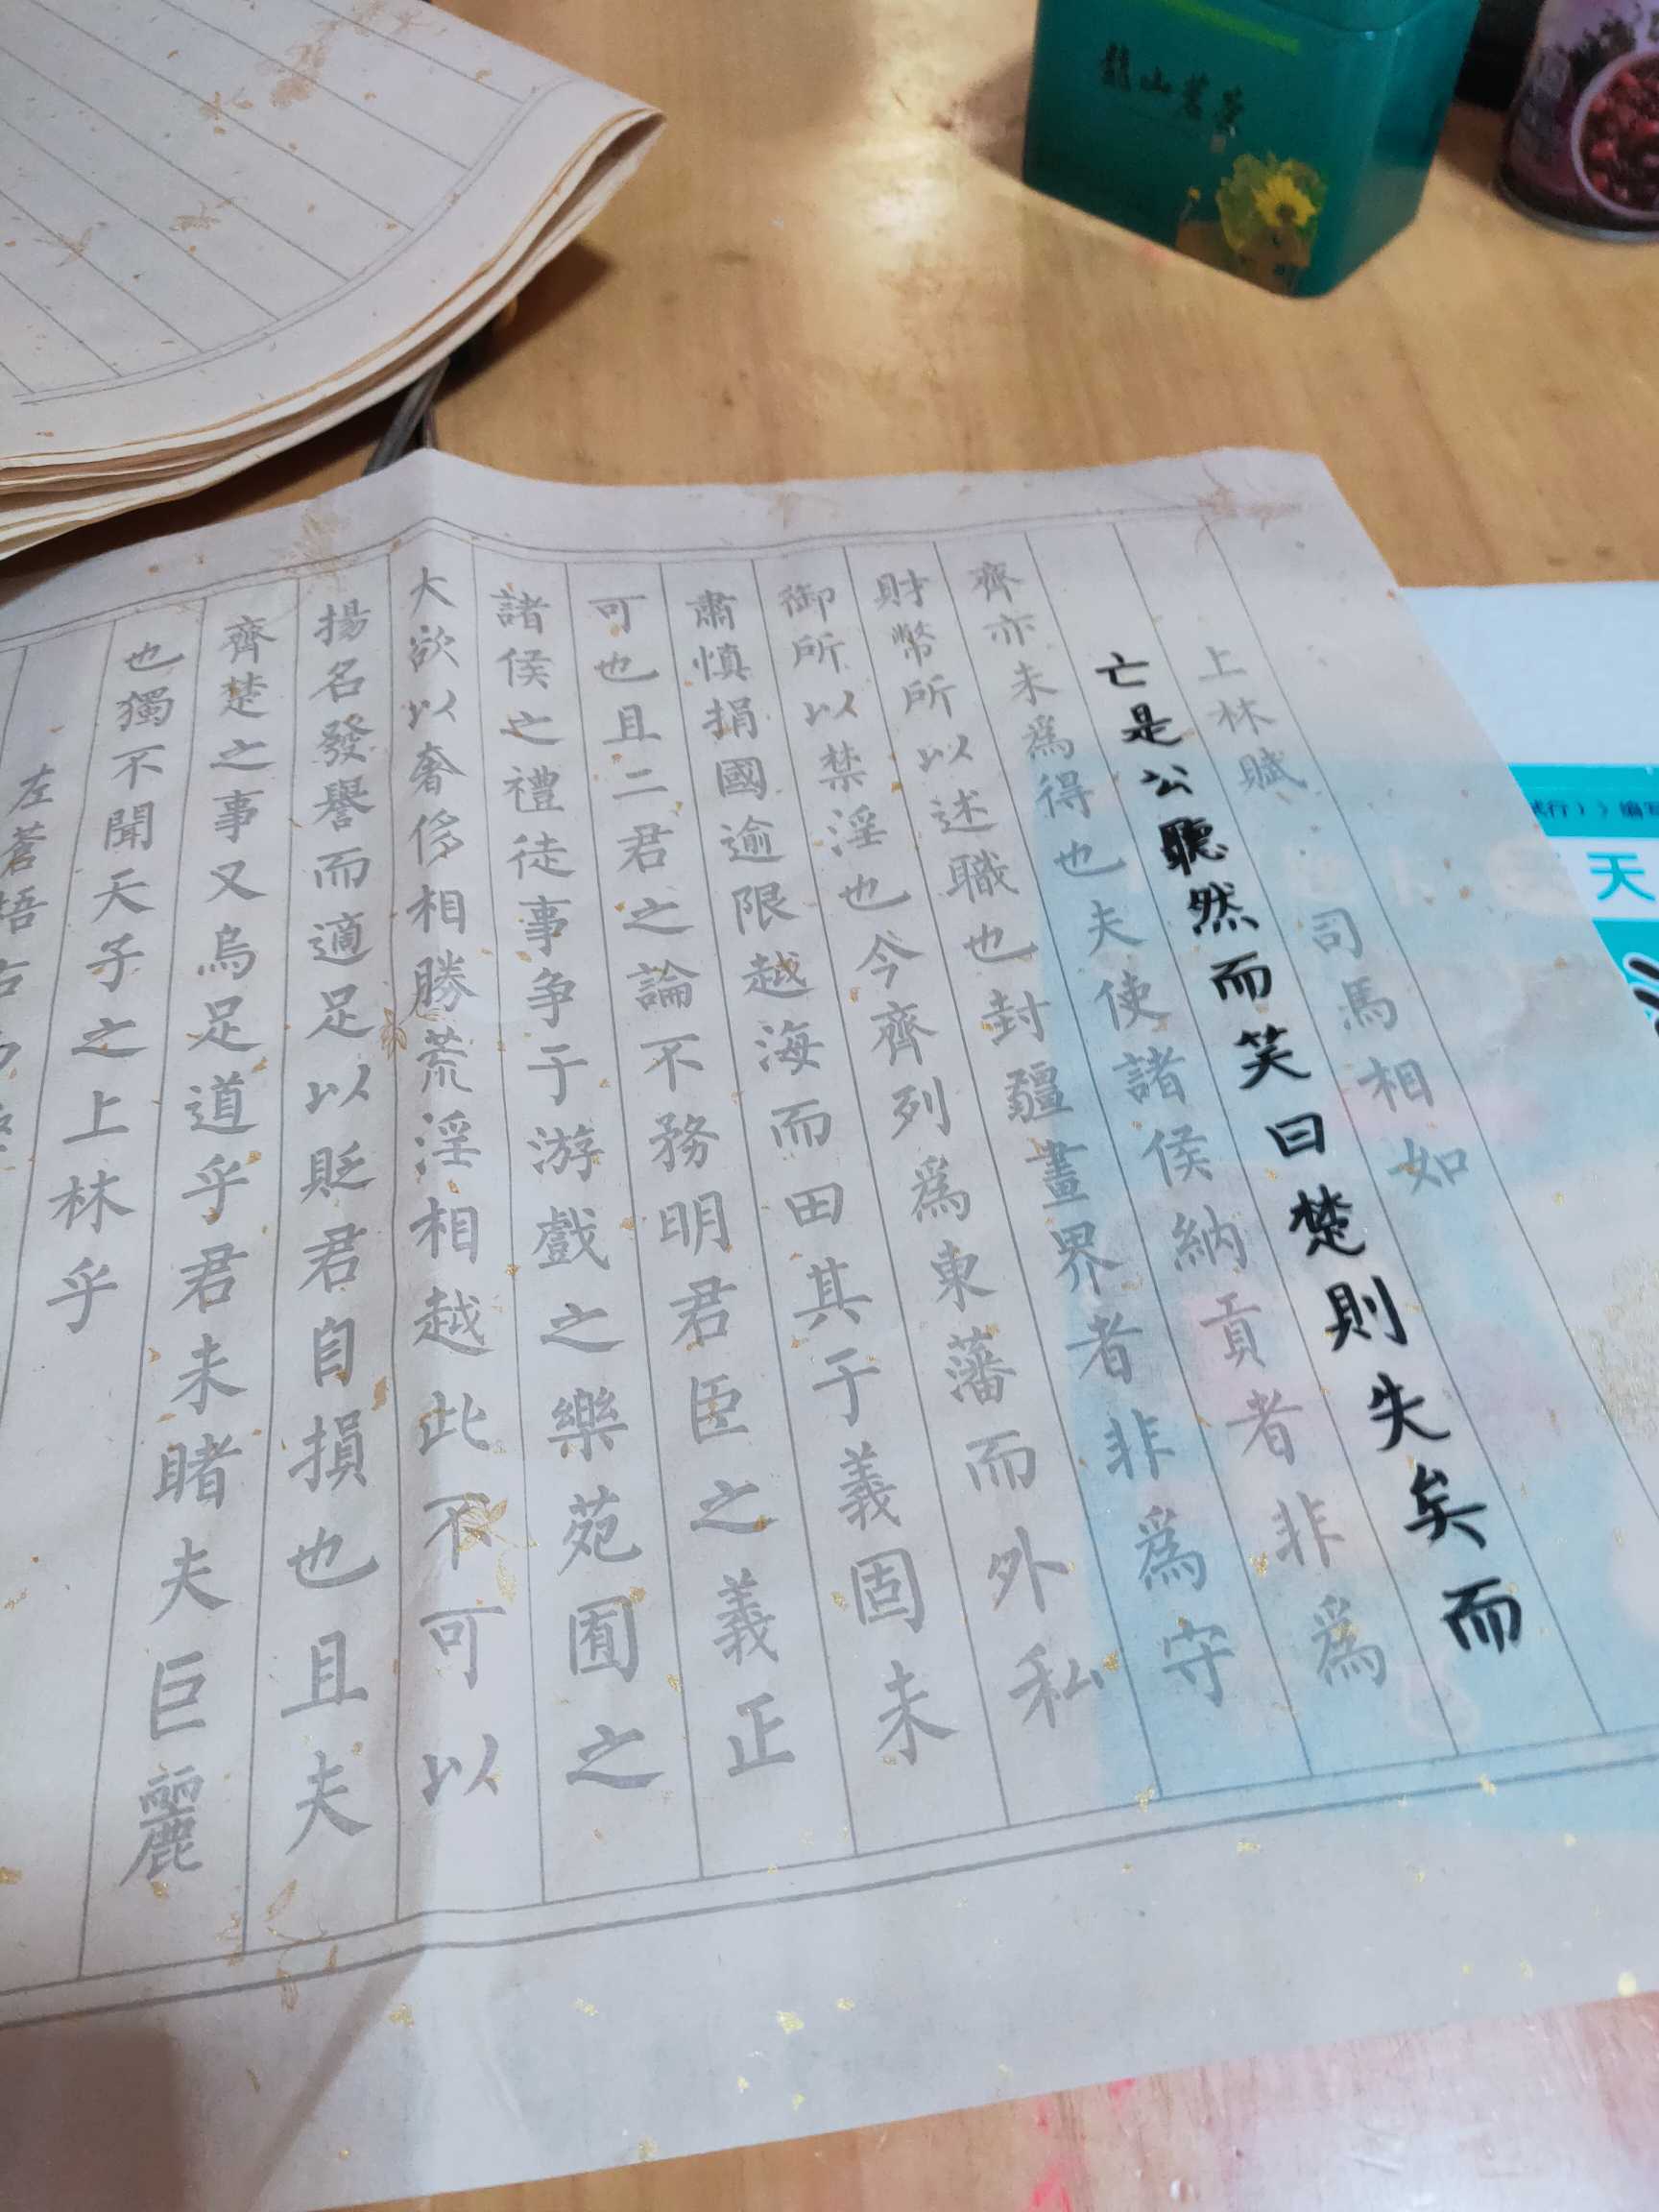 上林賦 司馬相如
亡是公聽然而笑曰楚則失矣而
齊亦未爲得也夫使諸侯納貢者非爲
財幣所以述職也封疆畫界者非爲守
御所以禁淫也今齊列爲東藩而外私
肅慎捐國逾限越海而田其于義固未
可也且二君之論不務明君臣之義正
諸侯之禮徒事争于游戲之樂苑囿之
大欲以奢侈相勝荒淫相越此不可以
揚名發譽而適足以貶君自損也且夫
齊楚之事又烏足道乎君未睹夫巨麗
也獨不聞天子之上林乎
左蒼梧右
龍山茗
行）》编
天